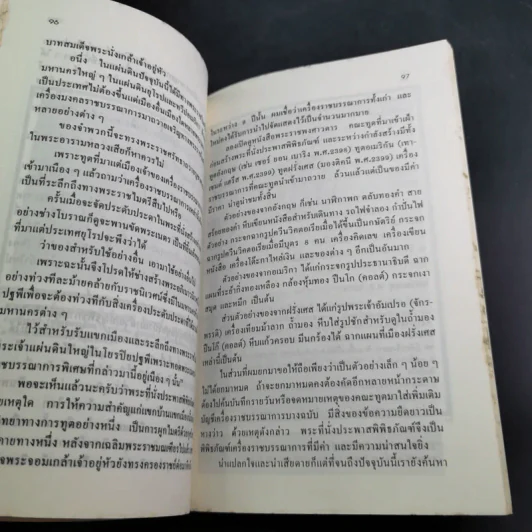 ๑๖
บาทสมเด็จพระนั่งเกล้าเจ้าอยู่หัว
อนึ่ง ในแผ่นดินปัจจุบันนี้ได้มี
มหานครใหญ่ ๆ ในแผ่นดินยุโรปและ
เป็นประเทศไม่ต้องขึ้นแต่เมืองอื่น
เครื่องมงคลราชบรรณาการมาถวาย
หลายอย่างต่าง ๆ
ของจำพวกนี้จะทรงพระราช
ในพระอารามหลวงเสียก็หาควรไม่
เพราะทูตที่มาแต่เมืองเจ้าของเครื่องราชบรรณ
เข้ามาเนือง ๆ แล้วถามว่าเครื่องราชบรรณาการ
เป็นที่ระลึกถึงทางพระราชไมตรีสืบไปหรือ
ครั้นเมื่อจะจัดประดับประดาในพระที่นั่ง
อย่างช่างโบราณก็ดูจะพานขัดพระเนตร
ที่มาแต่ประเทศยุโรปจะพึงว่าได้
ว่าของสำหรับใช้อย่างอื่น เอามาใช้อย่าง
เพราะฉะนั้นจึงโปรดให้ช่างสร้างพระ
อย่างห้วงทีละม้ายคล้ายกับราชนิเวศน์ซึ่งมีใน
ปฐพีเพื่อจะต้องห้วงทีกับสิ่งเครื่องประดับประดา
มหานครต่าง ๆ
ไว้สำหรับรับแขกเมืองและระลึกถึงทางพระ
เจ้าแผ่นดินใหญ่ในโยรปิยปฐพีเพราะทอด
ราชบรรณาการพิเศษที่กล่าวมานี้อยู่เนือง ๆ นั้น"
พอจะเห็นแล้วนะครับว่าพระที่นั่งประพาส
เหตุใด การให้ความสำคัญแก่แขกบ้านแขกเมือง
วิทยาทางการทูตอย่างหนึ่ง เป็นการผูกไมตรีด้วย
ลายทางหนึ่ง หลังจากเฉลิมพระราชมณเฑียร
จพระจอมเกล้าเจ้าอยู่หัวยังทรงครองราชย์
๑๗
ในระหว่าง ๕ ปีนั้น ผมเชื่อว่าเครื่องราชบรรณาการทั้งเก่า และ
ใหม่จะได้รับการนำไปจัดแสดงไว้เป็นจำนวนมากมาย
ลองเปิดดูหนังสือพระราชพงศาวดาร คณะทูตที่มาเข้าเฝ้า
ก่อนสร้างพระที่นั่งประพาสพิพิธภัณฑ์ และระหว่างกำลังสร้างมีทั้ง
ทูตอังกฤษ (เช่น เซอร์ ยอน เบาริง พ.ศ.๒๓๙๘) ทูตอเมริกัน (เทา-
เซนต์ แฮริส พ.ศ.๒๓๙๙) ทูตฝรั่งเศส (มองติคนี พ.ศ.๒๓๙๙) เครื่อง
ราชบรรณาการที่คณะทูตนำเข้ามาถวาย ล้วนแล้วแต่เป็นของมีค่า
มีราคา น่าดูน่าชมทั้งสิ้น
ตัวอย่างของจากอังกฤษ ก็เช่น นาฬิกาพก ตลับทองคำ สาย
สร้อยทองคำ หีบเขียนหนังสือสำหรับเดินทาง รถไฟจำลอง กำปั่นไฟ
ตัวอย่าง กระจกฉากรูปควีนวิคตอเรียเมื่อได้ขึ้นเป็นกษัตริย์ กระจก
ฉากรูปควีนวิคตอเรียเมื่อมีบุตร ๘ คน เครื่องคิดเลข เครื่องเขียน
หนังสือ เครื่องโต๊ะกาไหล่เงิน และของต่าง ๆ อีกเป็นอันมาก
ตัวอย่างของจากอเมริกา ได้แก่กระจกรูปประธานาธิบดี ฉาก
แผนที่ชะล่ากิ่งทองเหลือง กล้องหุ้มทอง ปืนโก้ (คอลต์) กระจกเงา
สมุด และหมึก เป็นต้น
ส่วนตัวอย่างของจากฝรั่งเศส ได้แก่รูปพระเจ้าอัมเปรอ (จักร-
พรรดิ) เครื่องเทียมม้าลาก ถ้ำมอง หีบใส่รูปชักสำหรับดูในถ้ำมอง
ปืนโก้ (คอลต์) หีบแล้วครอบ มีนกร้องได้ ฉากแผนที่เมืองฝรั่งเศส
เหล่านี้เป็นต้น
ในส่วนที่ผมยกมาขอให้ถือเพียงว่าเป็นตัวอย่างเล็ก ๆ น้อย ๆ
ไม่ได้ยกมาหมด ถ้าจะยกมาหมดคงต้องคัดอีกหลายหน้ากระดาษ
ต้องไปค้นบันทึกรายวันหรือจดหมายเหตุของคณะทูตมาใส่เพิ่มเติม
บัญชีเครื่องราชบรรณาการบางฉบับ มีสิ่งของข้อความยืดยาวกว่าเป็น
หางว่าว ด้วยเหตุดังกล่าว พระที่นั่งประพาสพิพิธภัณฑ์จึงเป็น
พิพิธภัณฑ์เครื่องราชบรรณาการที่มีค่า และมีความน่าสนใจยิ่ง
น่าแปลกใจและน่าเสียดายก็แต่ที่จนถึงปัจจุบันนี้เรายังค้นหา